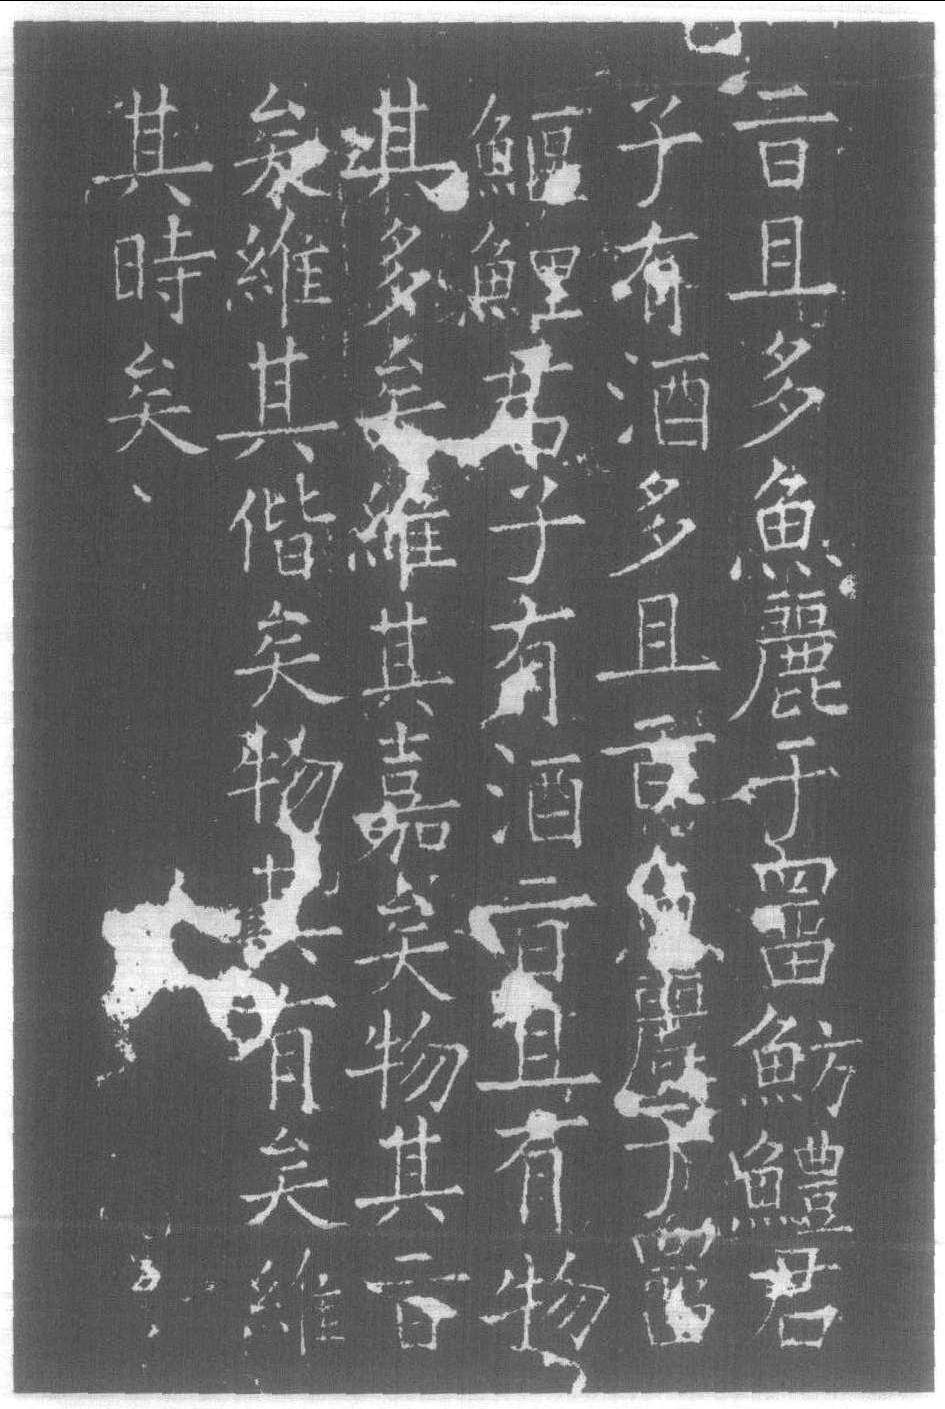 旨且多魚麗于罶魴鱧君
子有酒多且旨魚麗于罶
鰋鯉君子有酒旨且有物
其多矣維其嘉矣物其旨
矣維其偕矣物其有矣維
其時矣